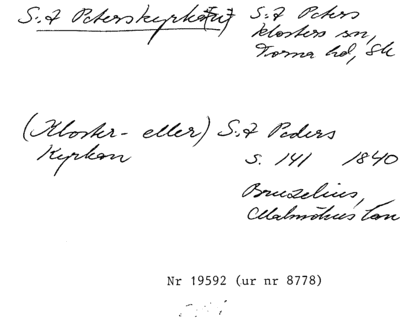 S:t Peterskyrka(n) S:t Peters
klosters sn,
Torna hd, Sk
(Kloster- eller) S:t Peders
Kyrkan s. 141 1840
Bruzelius,
Malmöhus län
Nr 19592 (ur nr 8778)